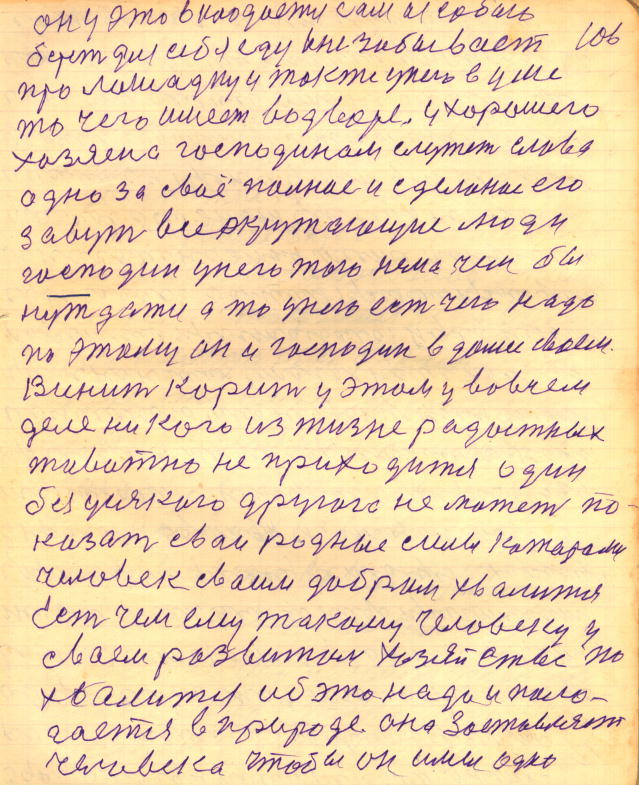 он у это вкладается сам и с собою
берет для себя еду и не забывает 106
про лошадку и также у него в уме
то чего имеет во дворе. у хорошего
хозяена господином служет слова
одно за своё полное и сделоное его
завут все окружающие люди
господин у него того нема чем бы
нуждатца а то у него ест чего надо
по этому он и господин в доми своем.
Винит корит у этому вовчем
деле никого из жизне радостных
животно не приходится один
без усякого другога не может по-
казат сваи родные сили катарами
человек сваим добрам хвалится
Ест чем ему такому человеку у
сваем развитом хозяйстве по
хвалится и об это надо и пола-
гается в природе она заставляет
человека чтобы он имел одно